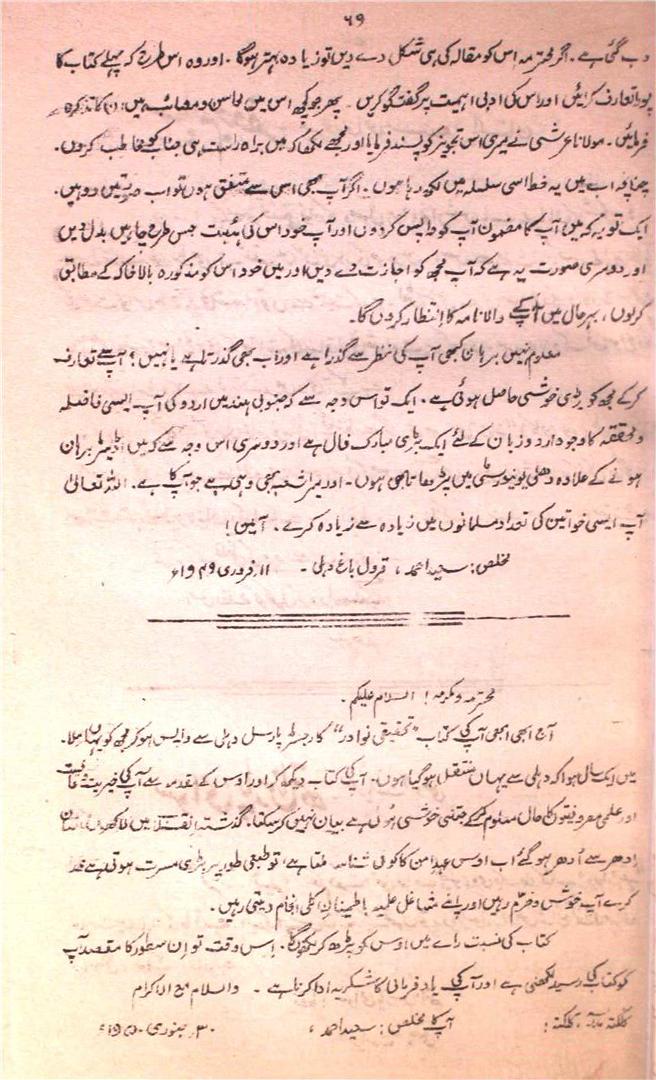 ۶۹
دب گئی ہے۔ اگر محترمہ اس کو مقالہ کی ہی شکل دے دیں تو زیادہ بہتر ہوگا۔ اور وہ اس طرح کہ پہلے کتاب کا
پورا تعارف کرائیں اور اس کی ادبی اہمیت پر گفتگو کریں۔ پھر جو کچھ اس میں محاسن و معائب ہیں، ان کا تذکرہ
فرمائیں۔ مولانا عرشی نے میری اس تجویز کو پسند فرمایا اور مجھے لکھا کہ میں براہ راست ہی جناب کو مخاطب کروں۔
چنانچہ اب میں یہ خط اسی سلسلہ میں لکھ رہا ہوں۔ اگر آپ بھی اسی سے متفق ہوں تو اب صورتیں دو ہیں۔
ایک تو یہ کہ میں آپ کا مضمون آپ کو واپس کردوں اور آپ خود اس کی ہئیت جس طرح چاہیں بدل دیں
اور دوسری صورت یہ ہے کہ آپ مجھ کو اجازت دے دیں اور میں خود اس کو مذکورہ بالا خاکہ کے مطابق
کرلوں، بہر حال میں آپ کے والا نامہ کا انتظار کروں گا۔
معلوم نہیں برہان کبھی آپ کی نظر سے گذرا ہے اور اب بھی گذرتا ہے یا نہیں؟ آپ سے تعارف
کرکے مجھ کو بڑی خوشی حاصل ہوئی ہے۔ ایک تو اس وجہ سے کہ جنوبی ہند میں اردو کی آپ ایسی فاضلہ
و محققہ کا وجود اردو زبان کے لئے ایک بڑی مبارک فال ہے اور دوسری اس وجہ سے کہ میں اڈیٹر برہان
ہونے کے علاوہ دھلی یونیورسٹی میں پڑھاتا بھی ہوں۔ اور میرا شعبہ بھی وہی ہے جو آپ کا ہے۔ اللہ تعالیٰ
آپ ایسی خواتین کی تعداد مسلمانوں میں زیادہ سے زیادہ کرے۔ آمین!
مخلص: سعید احمد، قرول باغ دہلی۔ ۱۱؍ فروری ۱۹۴۹ء
محترمہ و مکرمہ! السلام علیکم۔
آج ابھی ابھی آپ کی کتاب "تحقیقی نوادر" کا رجسٹرڈ پارسل دہلی سے واپس ہوکر مجھ کو یہاں ملا۔
میں ایک سال ہوا کہ دہلی سے یہاں منتقل ہوگیا ہوں۔ آپ کی کتاب دیکھ کر اور اوس کے مقدمہ سے آپ کی خیریت عافیت
اور علمی مصروفیتوں کا حال معلوم کرکے جتنی خوشی ہوئی ہے بیان نہیں کرسکتا۔ گذشتہ میں لاکھوں انسان
ادھر سے اُدھر ہوگئے اب اوس عہدِ امن کا کوئی شناسا ملتا ہے، تو طبعی طور پر بڑی مسرت ہوتی ہے خدا
کرے آپ خوش و خرم رہیں اور اپنے مشاغل علمیہ باطمینان کلی انجام دیتی رہیں۔
کتاب کی نسبت رائے میں اوس کو پڑھ کر لکھوں گا۔ اس وقت تو ان سطور کا مقصد آپ
کو کتاب کی رسید لکھنی ہے اور آپ کی یاد فرمائی کا شکریہ ادا کرنا ہے۔ والسلام مع الاکرام
کلکتہ: آپ کا مخلص: سعید احمد، ۳۰ جنوری ۱۹۵۰ء